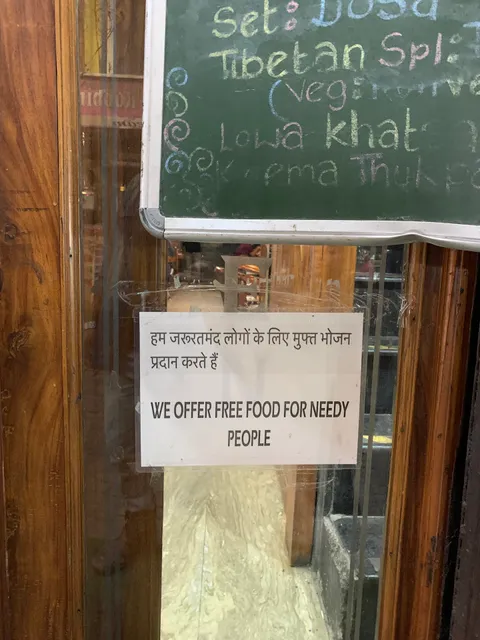 Set: Dosa
Tibetan Spl:
(Veg:
Lowa khat
हम जरूरतमंद लोगों के लिए मुफ्त भोजन
प्रदान करते हैं
WE OFFER FREE FOOD FOR NEEDY
PEOPLE